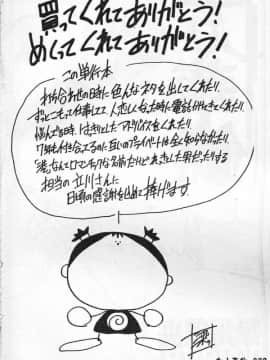 買ってくれてありがとう!
めくってくれてありがとう!
この単行本
打ち合わせの時に色んなネタを出してくれたり
ずっとこもって仕事してて人恋しくなった時に電話
悩んでる時、はきっとしたアドバイスをくれたり
7年も付き合ってるのに互いのプライベートは全く知らなかったり
「渚」なんてロマンチックな名前だけどあきらか男だったりする
担当の立川さんに
日頃の感謝を込めて捧げます